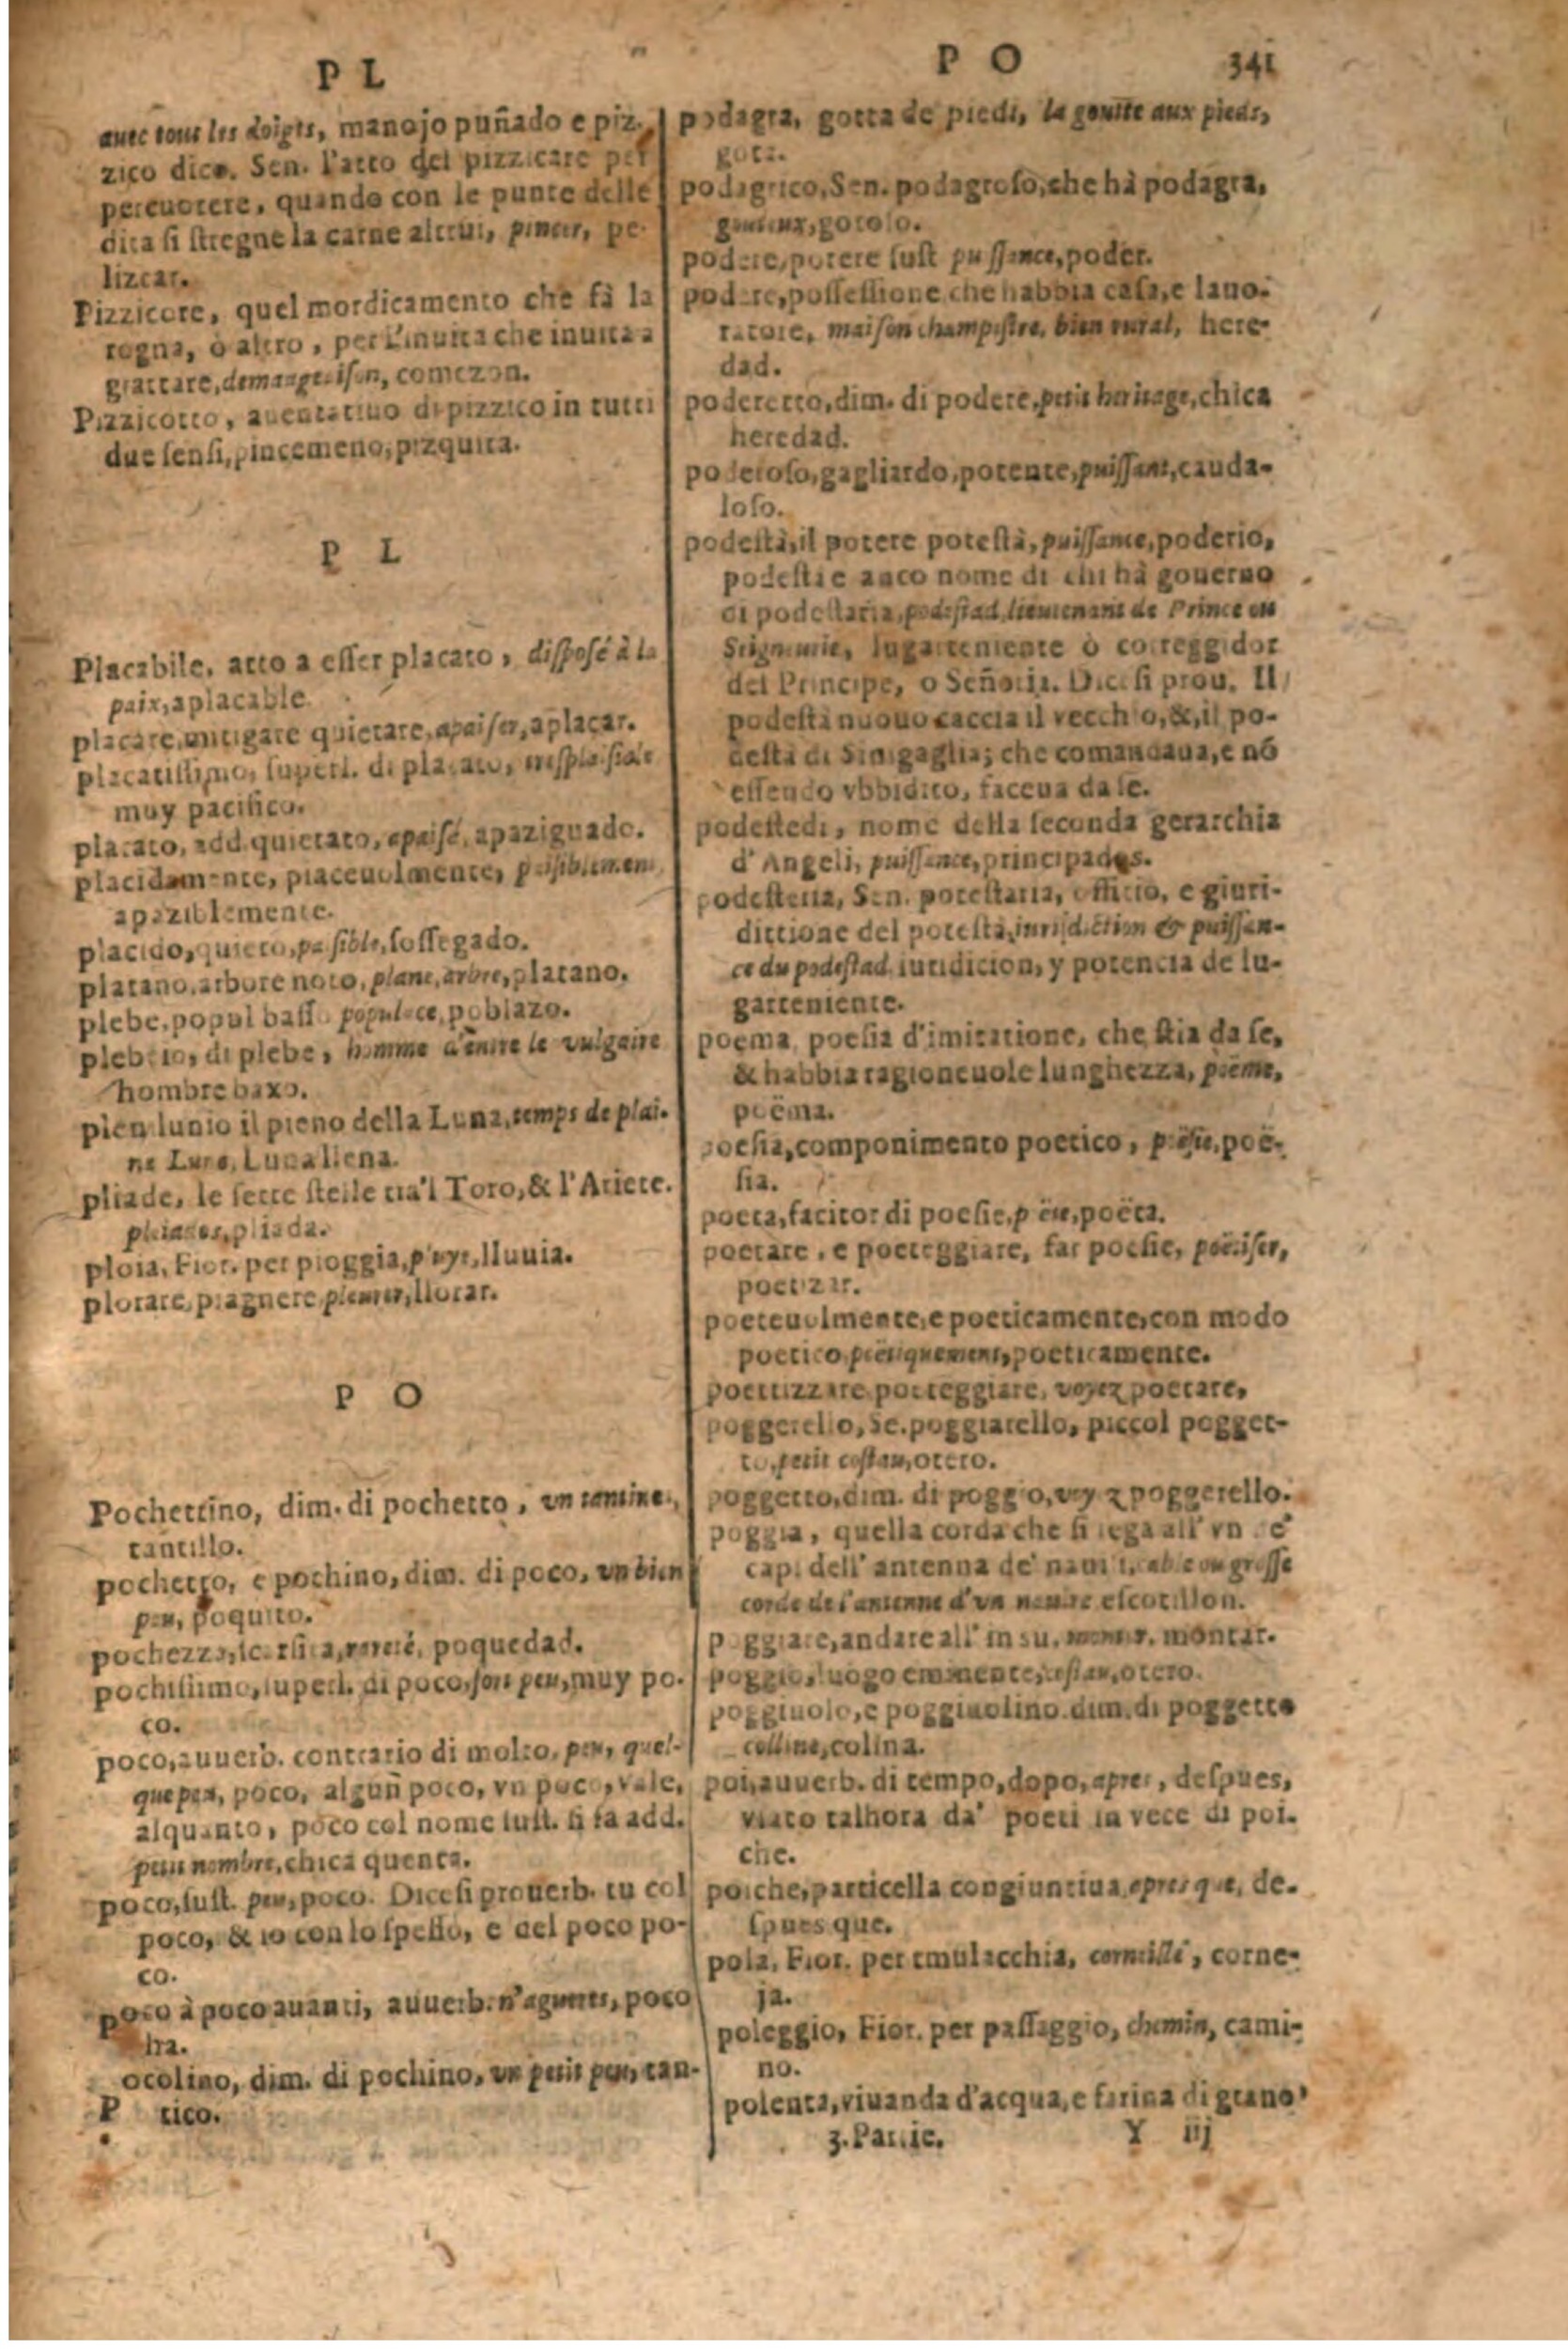 P L
auec tous les doigts, manojo puñado e piz-
zico dice. Sen. l'atto del pizzicare per
percuotere, quando con le punte delle
dita si stregne la carne altrui, pincer, pe-
lizcar.
Pizzicore, quel mordicamento che fà la
rogna, o altro, per l'inuita che inuita a
grattare, demangeison, comezon.
Pizzicotto, aumentatiuo di pizzico in tutti
due sensi, pincemeno, pizquita.
P L
Placabile, atto a esser placato, disposé à la
paix, aplacable.
placare, mitigare quietare, apaiser, aplacar.
placatissimo, superl. di placato,
muy pacifico.
placato, add. quietato, apaisé, apaziguado.
placidamente, piaceuolmente, paisiblement,
apaziblemente.
placido, quieto, paisible, sossegado.
platano, arbore noto, plane, arbre, platano.
plebe, popul basso populace, poblazo.
plebeio, di plebe, homme d'entre le vulgaire
hombre baxo.
plenilunio il pieno della Luna, temps de plai-
ne Lune, Luna llena.
pliade, le sette stelle tra'l Toro, & l'Ariete.
pleiades, pliada.
ploia, Fior. per pioggia, pluye, lluuia.
plorare, piagnere pleurer, llorar.
P O
Pochettino, dim. di pochetto, vn tantinet,
tantillo.
pochetto, e pochino, dim. di poco, vn bien
peu, poquito.
pochezza, scarsita, rareté, poquedad.
pochissimo, superl. di poco, fort peu, muy po-
co.
poco, auuerb. contrario di molto, peu, quel-
que peu, poco, algun poco, vn poco, vale,
alquanto, poco col nome sust. si fa add.
petit nombre, chica quenta.
poco, sust. peu, poco. Dicesi prouerb. tu col
poco, & io con lo spesso, e del poco po-
co.
poco à poco auanti, auuerb. n'agueres, poco
ha.
ocolino, dim. di pochino, vn petit peu, tan-
P tico.
P O 341
podagra, gotta de piedi, la goutte aux pieds,
gota.
podagrico, Sen. podagroso, che hà podagra,
gouteux, gotoso.
podere, potere sust puissance, poder.
podere, possessione che habbia casa, e lauo-
ratore, maison champestre, bien rural, here-
dad.
poderetto, dim. di podere, petit heritage, chica
heredad.
poderoso, gagliardo, potente, puissant, cauda-
loso.
podestà, il potere potestà, puissance, poderio,
podestà e anco nome di chi hà gouerno
di podestaria, podestad, lieutenant de Prince ou
Seigneurie, lugarteniente ò correggidor
del Principe, o Señoria. Dicesi prou. Il
podestà nuouo caccia il vecchio, &, il po-
destà di Sinigaglia; che comandaua, e nō
essendo vbbidito, faceua da se.
podestedi, nome della seconda gerarchia
d'Angeli, puissance, principados.
podesteria, Sen. potestaria, officio, e giuri-
dittione del potestà, iurisdiction & puissan-
ce du podestad. iuridicion, y potencia de lu-
garteniente.
poema, poesia d'imitatione, che stia da se,
& habbia ragioneuole lunghezza, pöeme,
poëma.
poesia, componimento poetico, pöesie, poë-
sia.
poeta, facitor di poesie, pöete, poëta.
poetare, e poeteggiare, far poesie, poëtiser,
poetizar.
poeteuolmente, e poeticamente, con modo
poetico pöetiquement, poeticamente.
poetizzare poeteggiare, voyez poetare,
poggerello, Se. poggiarello, piccol pogget-
to, petit costau, otero.
poggetto, dim. di poggio, voyez poggerello.
poggia, quella corda che si lega all' vn de'
capi dell' antenna de' nauili, cable ou grosse
corde de l'antenne d'vn nauire escotillon.
poggiare, andare all' in su, monter, montar.
poggio, luogo eminente, costau, otero.
poggiuolo, e poggiuolino dim. di poggetto
colline, colina.
poi, auuerb. di tempo, dopo, apres, despues,
vsato talhora da' poeti in vece di poi-
che.
poiche, particella congiuntiua, apres que, de-
spues que.
pola, Fior. per cmulacchia, corneille, corne-
ja.
poleggio, Fior. per passaggio, chemin, cami-
no.
polenta, viuanda d'acqua, e farina di grano
3. Partie. Y iij